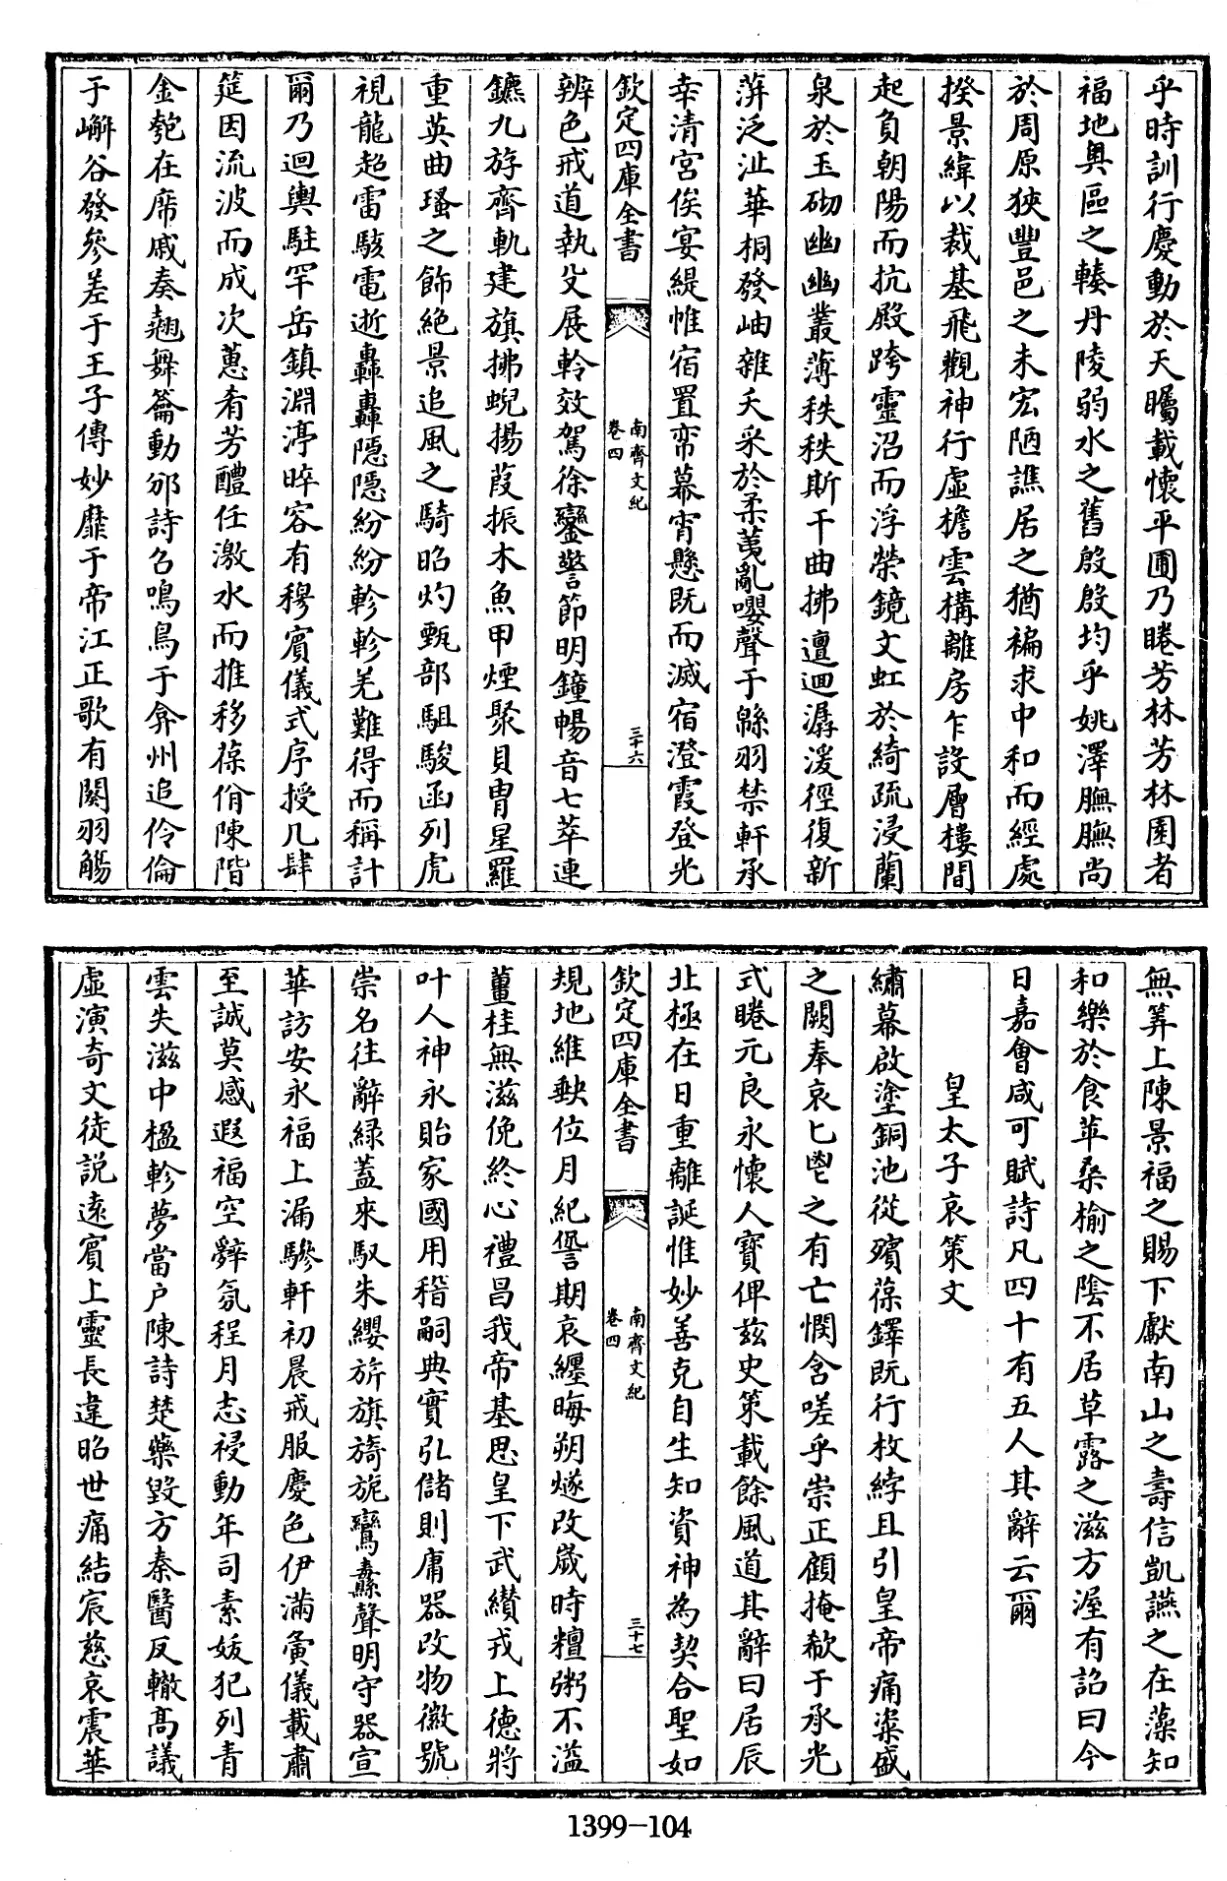 乎時訓行慶動於天矚載懷平圃乃睠芳林芳林園者
福地奥區之輳丹陵弱水之舊殷殷均乎姚澤膴膴尚
於周原狹豐邑之未宏陋譙居之猶褊求中和而經處
揆景緯以裁基飛觀神行虛檐雲構離房乍設層樓間
起負朝陽而抗殿跨靈沼而浮榮鏡文虹於綺疏浸蘭
泉於玉砌幽幽叢薄秩秩斯干曲拂邅迴潺湲徑復新
蓱泛沚華桐發岫雜夭采於柔荑亂嚶聲于緜羽禁軒承
幸清宮俟宴緹帷宿置帟幕宵懸既而滅宿澄霞登光
欽定四庫全書
南齊文紀
卷四
三十六
辨色戒道執殳展軨效駕徐鑾警節明鐘暢音七萃連
鑣九斿齊軌建旗拂蜺揚葭振木魚甲煙聚貝胄星羅
重英曲瑵之飾絶景追風之騎昭灼甄部馹駿函列虎
視龍超雷駭電逝轟轟隱隱紛紛軫軫羌難得而稱計
爾乃迴輿駐罕岳鎮淵渟睟容有穆賓儀式序授几肆
筵因流波而成次蕙肴芳醴任激水而推移葆佾陳階
金匏在席戚奏翹舞籥動邠詩召鳴鳥于弇州追伶倫
于嶰谷發參差于王子傳妙靡于帝江正歌有闋羽觴
無筭上陳景福之賜下獻南山之壽信凱讌之在藻知
和樂於食苹桑榆之陰不居草露之滋方渥有詔曰今
日嘉會咸可賦詩凡四十有五人其辭云爾
皇太子哀策文
繡幕啟塗銅池從殯葆鐸既行枚綍且引皇帝痛粢盛
之闕奉哀匕鬯之有亡憫含嗟乎崇正顧掩欷于承光
式睠元良永懷人寶俾兹史策載餘風道其辭曰居辰
北極在日重離誕惟妙善克自生知資神為契合聖如
欽定四庫全書
南齊文紀
卷四
三十七
規地維缺位月紀諐期哀纒晦朔燧改嵗時𥼷粥不溢
薑桂無滋俛終心禮昌我帝基思皇下武纘戎上德將
叶人神永貽家國用稽嗣典實引儲則庸器改物徽號
崇名往辭緑蓋來馭朱纓旂旗旖旎鸞纛聲明守器宣
華訪安永福上漏驂軒初晨戒服慶色伊滿夤儀載肅
至誠莫感遐福空辭氛程月志祲動年司素妭犯列青
雲失滋中楹軫夢當户陳詩楚藥毀方秦醫反轍髙議
虛演奇文徒説遠賓上靈長違昭世痛結宸慈哀震華
1399-104